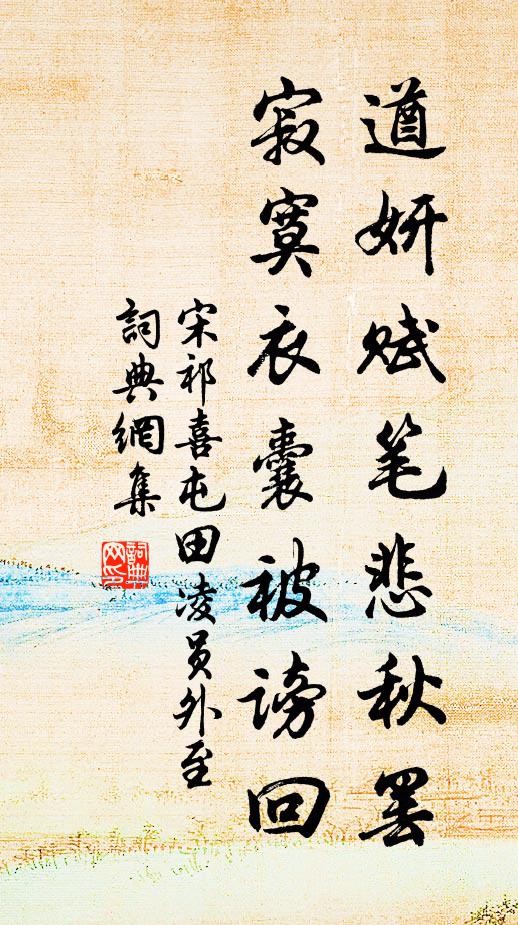 遒妍赋笔悲秋罢
寂寞衣囊被谤回
宋祁喜屯田凌员外至
詞典網集
詞典网印